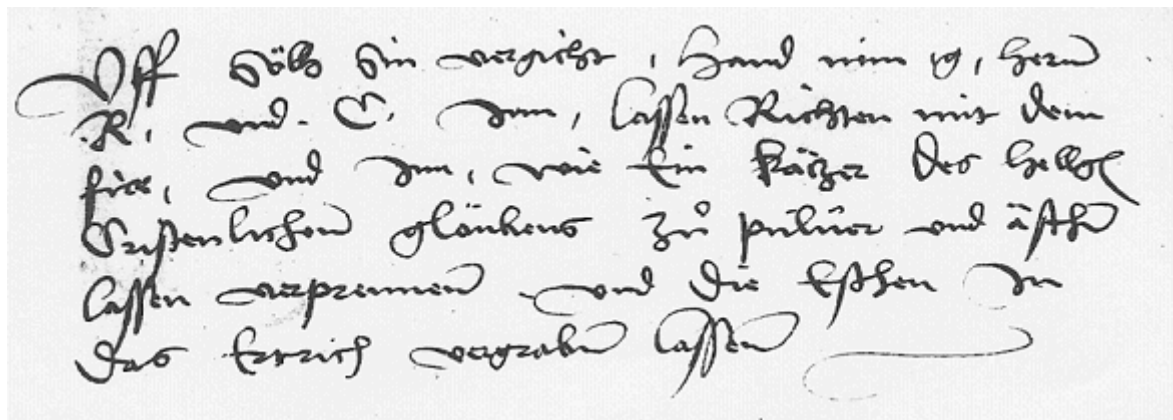 Uff Sölh Sin vergicht, Hand min g, herren
R, und C. Inn, lassen Richten mit dem
für, und Inn, wie Ein kätzer des hellgen
Cristenlichen glöubens zů pulver und äschen
lassen verprennen und die Eschen In
das Ertrich vergraben lassen